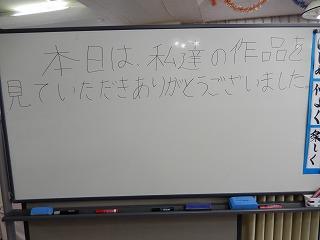 本日は、私達の作品を
見ていただきありがとうございました。
仲よく
楽しく